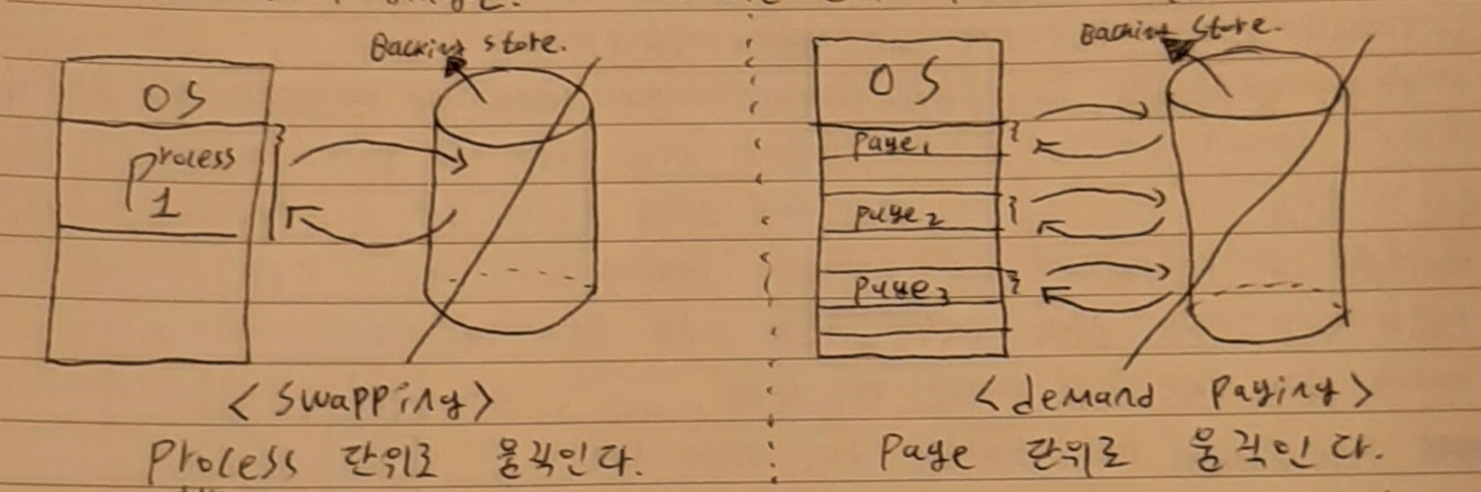 Backing store.
OS
Process
1
<swapping>
Process 단위로 움직인다.
Backing store.
OS
Page1
page2
page3
<demand paging>
Page 단위로 움직인다.